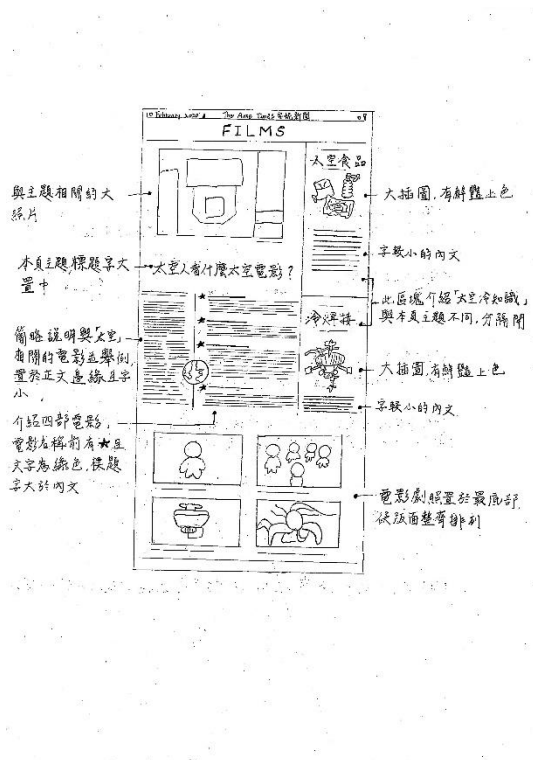 10 February 2020
08
FILMS
太空食品
太空人看什麼太空電影？
冷焊接
與主題相關的大
照片
本頁主題標題字大
置中
簡略說明與「太空」
有關的電影並舉例，
置於正文邊緣且字
小，
介紹四部電影，
電影名稱前有★且
文字為綠色，標題
字大於內文
大插圖，有鮮豔上色
字較小的內文
此區塊介紹「太空冷知識」
與本頁主題不同，分隔開
大插圖，有鮮豔上色
字較小的內文
電影劇照置於最底部，
使版面整齊排列